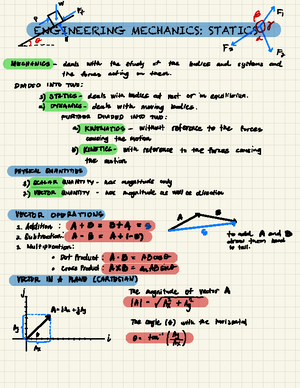 ENGINEERING MECHANICS: STATICS
MECHANICS - deals with the study of the bodies and systems and
the forces acting on them.
DIVIDED INTO TWO:
1) STATICS - deals with bodies at rest or in equilibrium.
2) DYNAMICS - deals with moving bodies.
FURTHER DIVIDED INTO TWO:
a) KINEMATICS - without reference to the forces
causing the motion
b) KINETICS - with reference to the forces causing
the motion
PHYSICAL QUANTITIES
1) SCALAR QUANTITY - has magnitude only
2) VECTOR QUANTITY - has magnitude as well as direction
VECTOR OPERATIONS
1. Addition : A + B = B + A = S
2. Subtraction: A - B = A + (-B)
3. Multiplication:
• Dot Product : A · B = AB cos θ
• Cross Product : A X B = AB sin θ
A B
S
to add A and B
draw them head
to tail.
VECTOR IN A PLANE (CARTESIAN)
The magnitude of vector A
|A| = √Ax² + Ay²
The angle (θ) with the horizontal
θ = tan⁻¹ (Ay/Ax)
j
Ay
θ
Ax
i
W
P
θ
β
F₁
γ
F₂
α
F₃